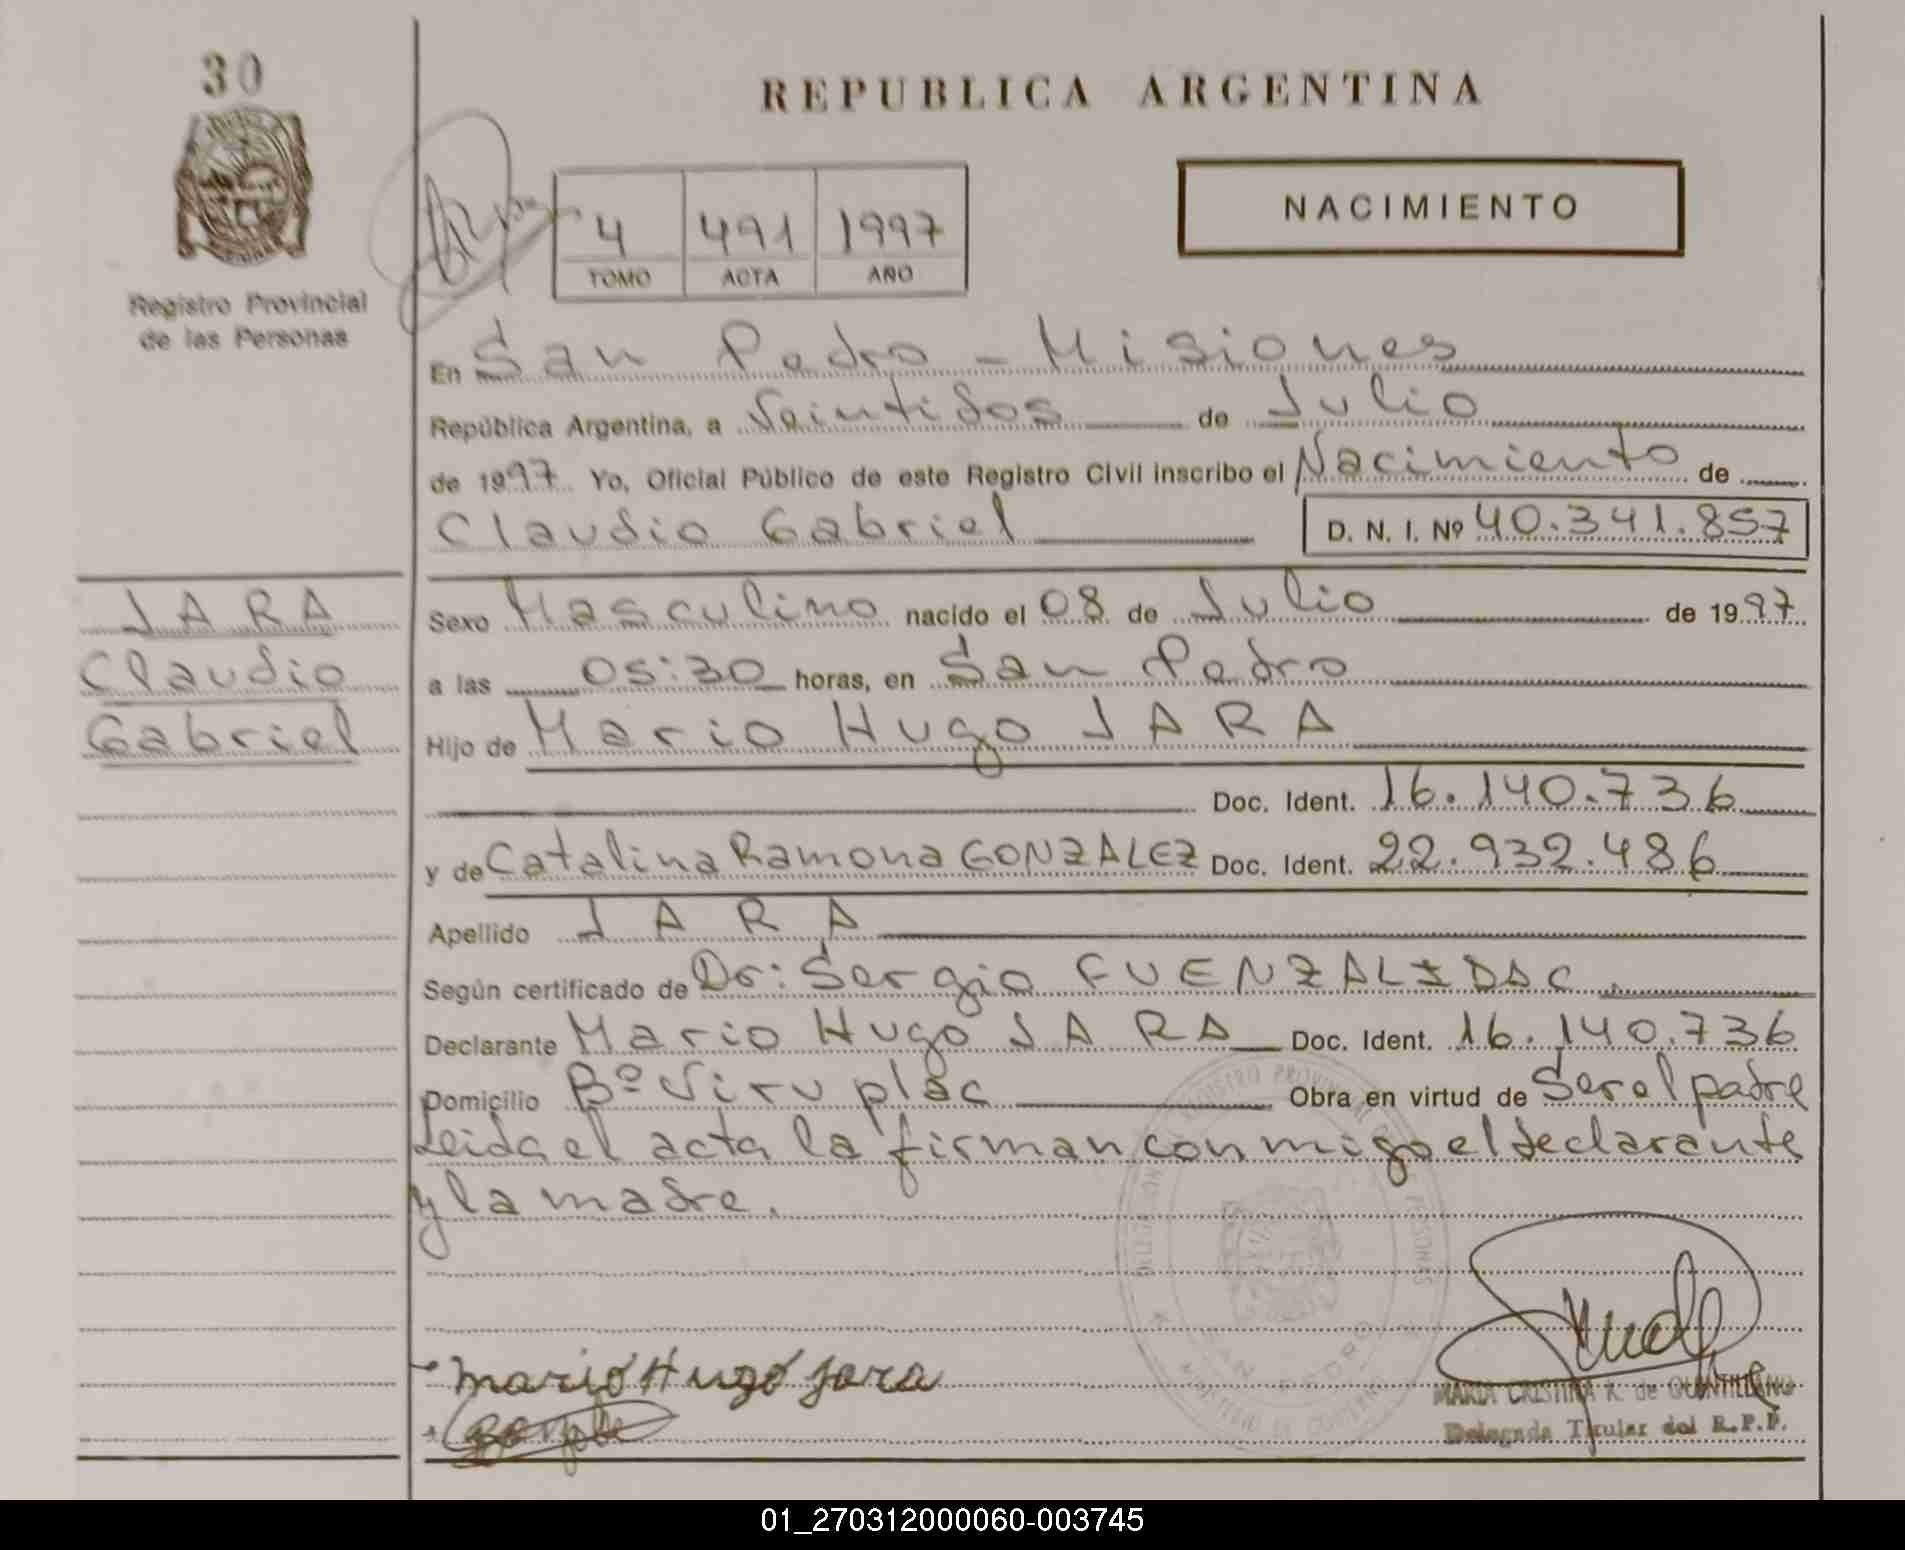 30
REPUBLICA ARGENTINA
NACIMIENTO
4 491 1997
TOMO ACTA AÑO
Registro Provincial
de las Personas
En San Pedro - Misiones
República Argentina, a Veintidos de Julio
de 1997 Yo, Oficial Público de este Registro Civil inscribo el Nacimiento de
Claudio Gabriel D. N. I. Nº 40.341.857
JARA
Claudio
Gabriel
Sexo Masculino nacido el 08 de Julio de 1997
a las 05:30 horas, en San Pedro
Hijo de Mario Hugo JARA
Doc. Ident. 16.140.736
y de Catalina Ramona GONZALEZ Doc. Ident. 22.932.486
Apellido JARA
Según certificado de Dr: Sergio FUENZALIDAC.
Declarante Mario Hugo JARA Doc. Ident. 16.140.736
Domicilio Bº Viru plac Obra en virtud de Ser el padre
Leida el acta la firman conmigo el declarante
y la madre.
Mario Hugo Jara
MARIA CRISTINA K. de QUINTILLANO
Delegada Titular del R.P.P.
SAN PEDRO
01_270312000060-003745